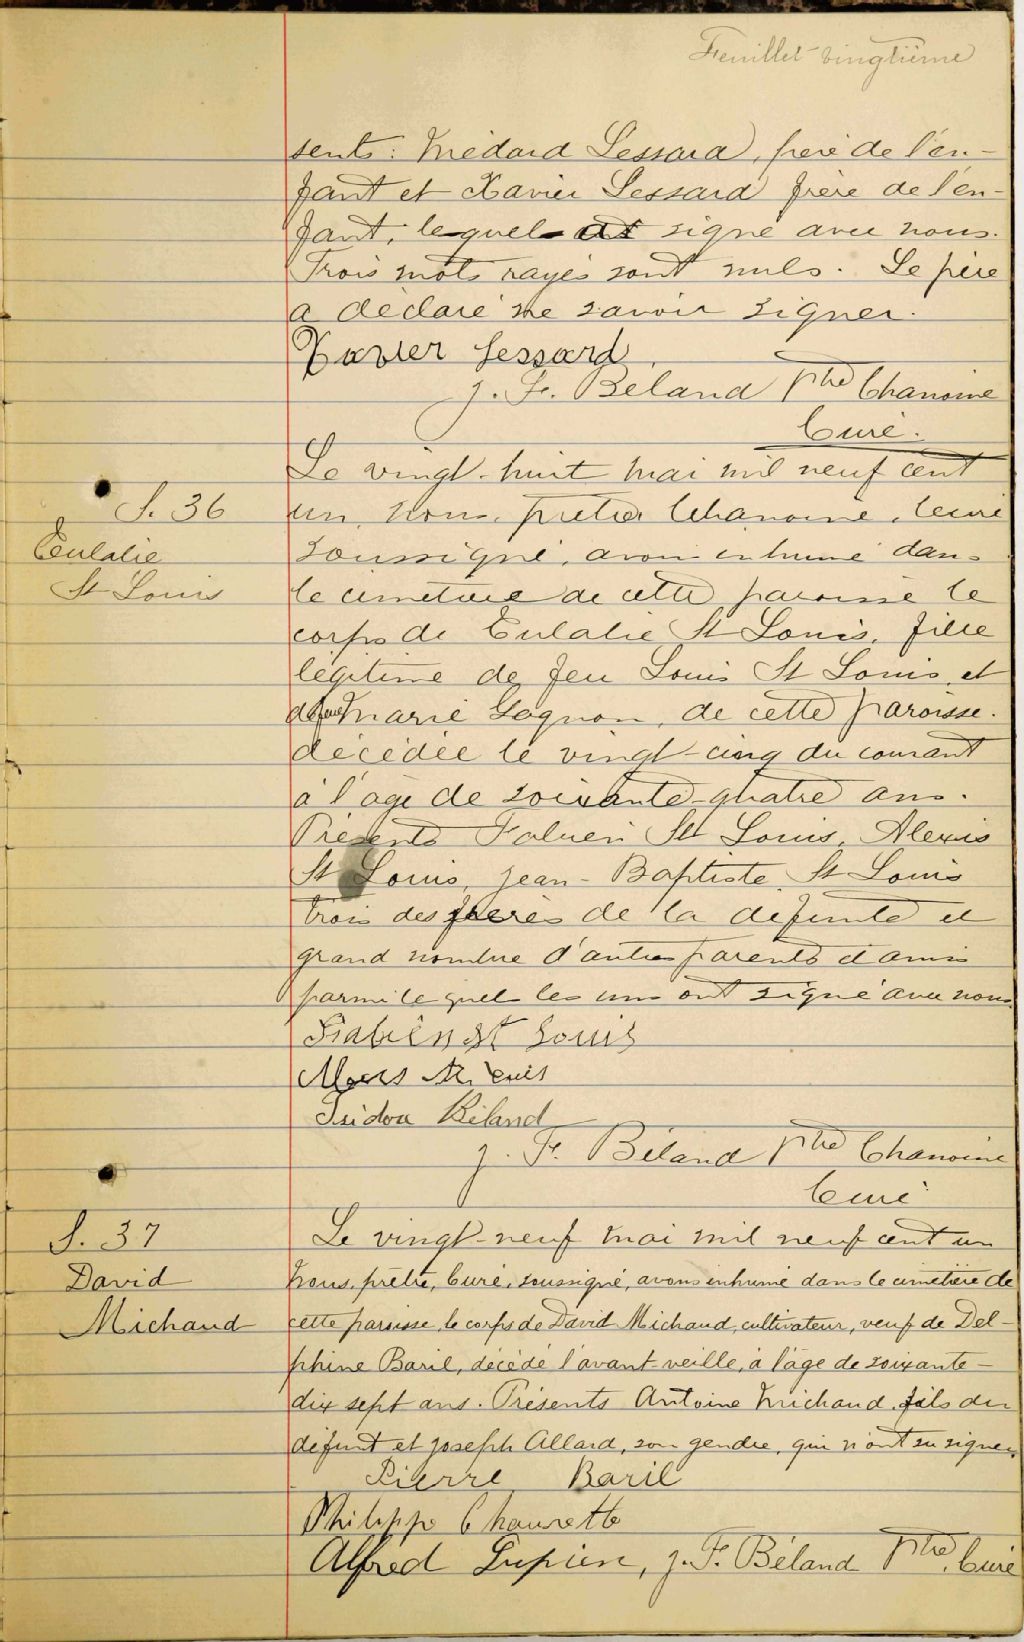 Feuillet vingtième
sents: Médard Lessard, père de l'en-
fant et Xavier Lessard frère de l'en-
fant, lequel a signé avec nous.
Trois mots rayés sont nuls. Le père
a déclaré ne savoir signer.
Xavier Lessard
J. F. Béland Ptre Chanoine
Curé.
Le vingt-huit mai mil neuf cent
S. 36
un, Nous, prêtre Chanoine, Curé
Eulalie
soussigné, avons inhumé dans
St Louis
le cimetière de cette paroisse le
corps de Eulalie St Louis, fille
légitime de feu Louis St Louis et
de feue Marie Gagnon, de cette paroisse.
décédée le vingt-cinq du courant
à l'âge de soixante-quatre ans.
Présents Fabien St Louis, Alexis
St Louis, Jean-Baptiste St Louis
trois des frères de la défunte et
grand nombre d'autres parents et amis
parmi lequels les uns ont signé avec nous
Fabien St Louis
Isidore Béland
J. F. Béland Ptre Chanoine
Curé
S. 37
Le vingt-neuf mai mil neuf cent un
David
Nous, prêtre, Curé, soussigné, avons inhumé dans le cimetière de
Michaud
cette paroisse, le corps de David Michaud, cultivateur, veuf de Del-
phine Baril, décédé l'avant veille, à l'âge de soixante-
dix sept ans. Présents Antoine Michaud, fils du
défunt et Joseph Allard, son gendre, qui n'ont su signer.
Pierre Baril
Philippe Chaurette
Alfred Lupien, J. F. Béland Ptre, Curé